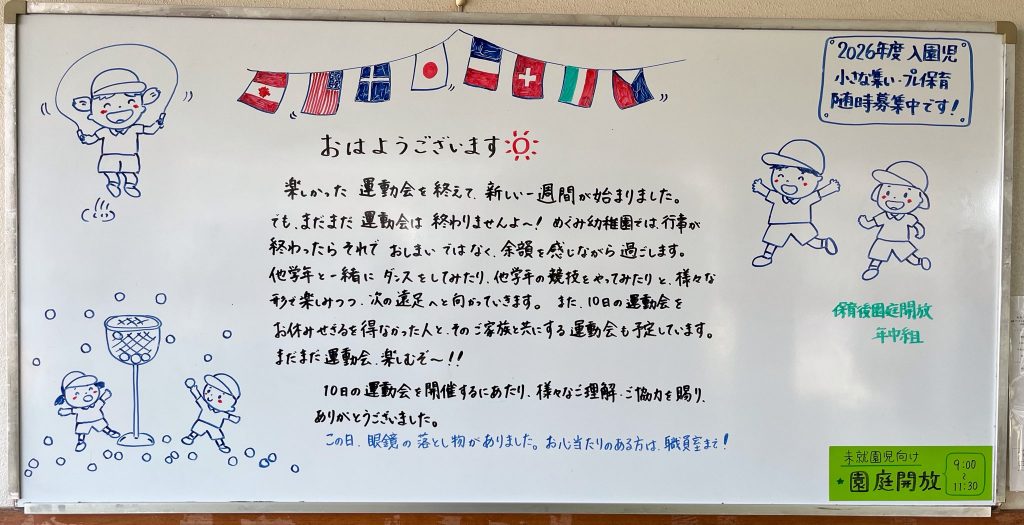 2026年度 入園児
小さな集い・プレ保育
随時募集中です！
おはようございます
楽しかった 運動会を終えて、新しい一週間が始まりました。
でも、まだまだ 運動会は 終わりませんよ～！ めぐみ幼稚園では、行事が
終わったら それで おしまい ではなく、余韻を感じながら 過ごします。
他学年と一緒に ダンスをしてみたり、他学年の競技をやってみたりと、様々な
形で楽しみつつ、次の遠足へと向かっていきます。 また、10日の運動会を
お休みせざるを得なかった人と、そのご家族と共にする 運動会も予定しています。
まだまだ運動会、楽しむぞ～！！
10日の運動会を開催するにあたり、様々なご理解・ご協力を賜り、
ありがとうございました。
この日、眼鏡の落とし物がありました。お心当たりのある方は、職員室まで！
保育後園庭開放
年中組
未就園児向け
★園庭開放
9:00
～
11:30